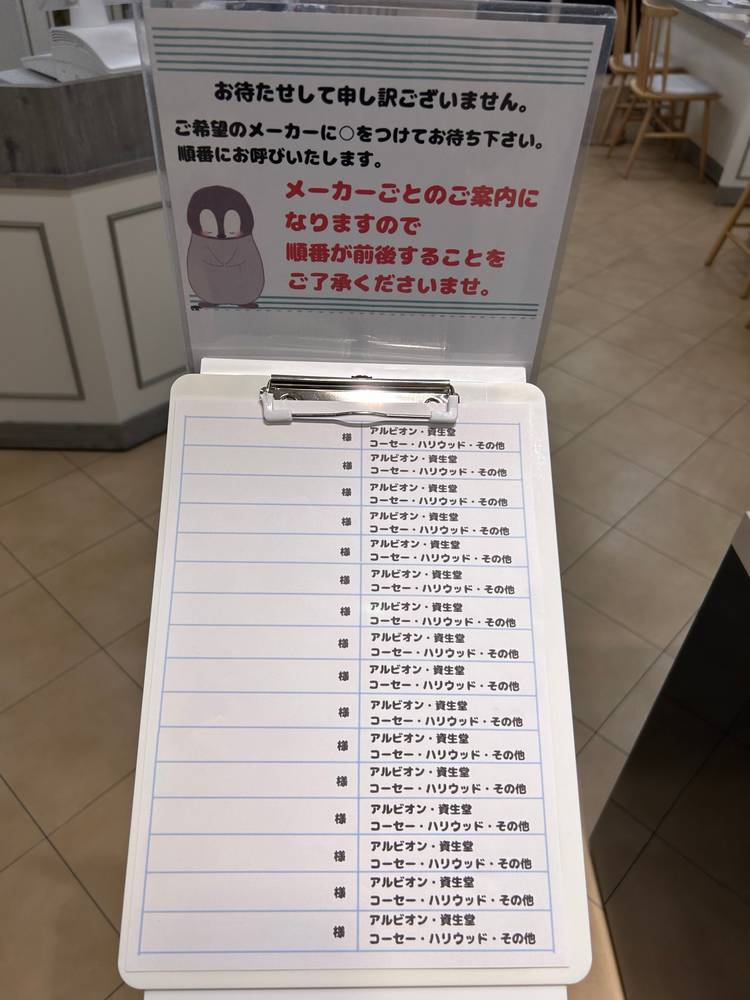 お待たせして申し訳ございません。
ご希望のメーカーに○をつけてお待ち下さい。
順番にお呼びいたします。
メーカーごとのご案内に
なりますので
順番が前後することを
ご了承くださいませ。
様 アルビオン・資生堂
コーセー・ハリウッド・その他
様 アルビオン・資生堂
コーセー・ハリウッド・その他
様 アルビオン・資生堂
コーセー・ハリウッド・その他
様 アルビオン・資生堂
コーセー・ハリウッド・その他
様 アルビオン・資生堂
コーセー・ハリウッド・その他
様 アルビオン・資生堂
コーセー・ハリウッド・その他
様 アルビオン・資生堂
コーセー・ハリウッド・その他
様 アルビオン・資生堂
コーセー・ハリウッド・その他
様 アルビオン・資生堂
コーセー・ハリウッド・その他
様 アルビオン・資生堂
コーセー・ハリウッド・その他
様 アルビオン・資生堂
コーセー・ハリウッド・その他
様 アルビオン・資生堂
コーセー・ハリウッド・その他
様 アルビオン・資生堂
コーセー・ハリウッド・その他
様 アルビオン・資生堂
コーセー・ハリウッド・その他
様 アルビオン・資生堂
コーセー・ハリウッド・その他
様 アルビオン・資生堂
コーセー・ハリウッド・その他